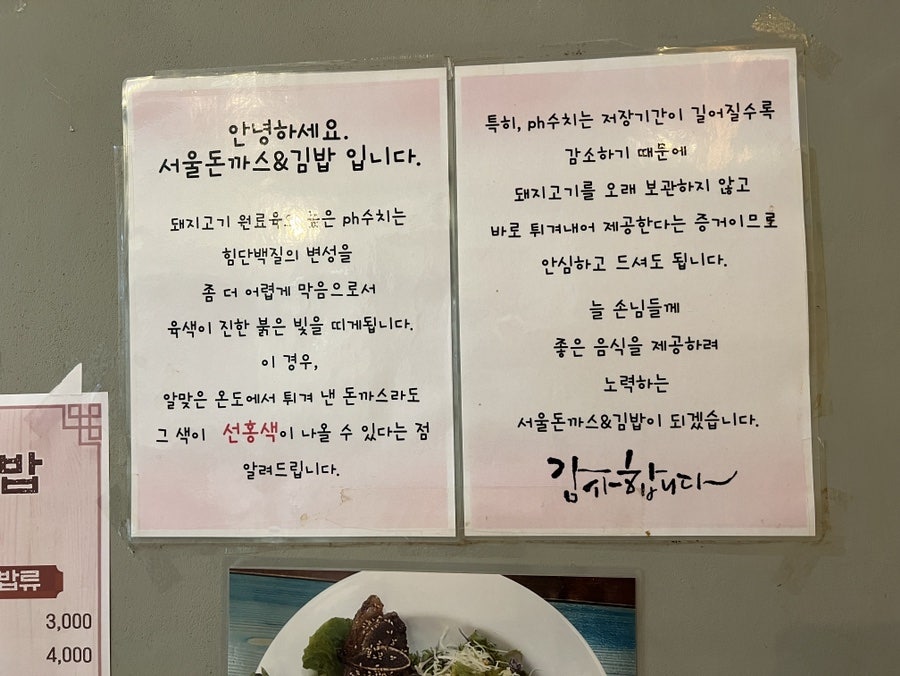 안녕하세요.
서울돈까스&김밥 입니다.
돼지고기 원료육의 높은 ph수치는
힘단백질의 변성을
좀 더 어렵게 막음으로서
육색이 진한 붉은 빛을 띠게됩니다.
이 경우,
알맞은 온도에서 튀겨 낸 돈까스라도
그 색이 선홍색이 나올 수 있다는 점
알려드립니다.
특히, ph수치는 저장기간이 길어질수록
감소하기 때문에
돼지고기를 오래 보관하지 않고
바로 튀겨내어 제공한다는 증거이므로
안심하고 드셔도 됩니다.
늘 손님들께
좋은 음식을 제공하려
노력하는
서울돈까스&김밥이 되겠습니다.
감사합니다
밥
밥류
3,000
4,000